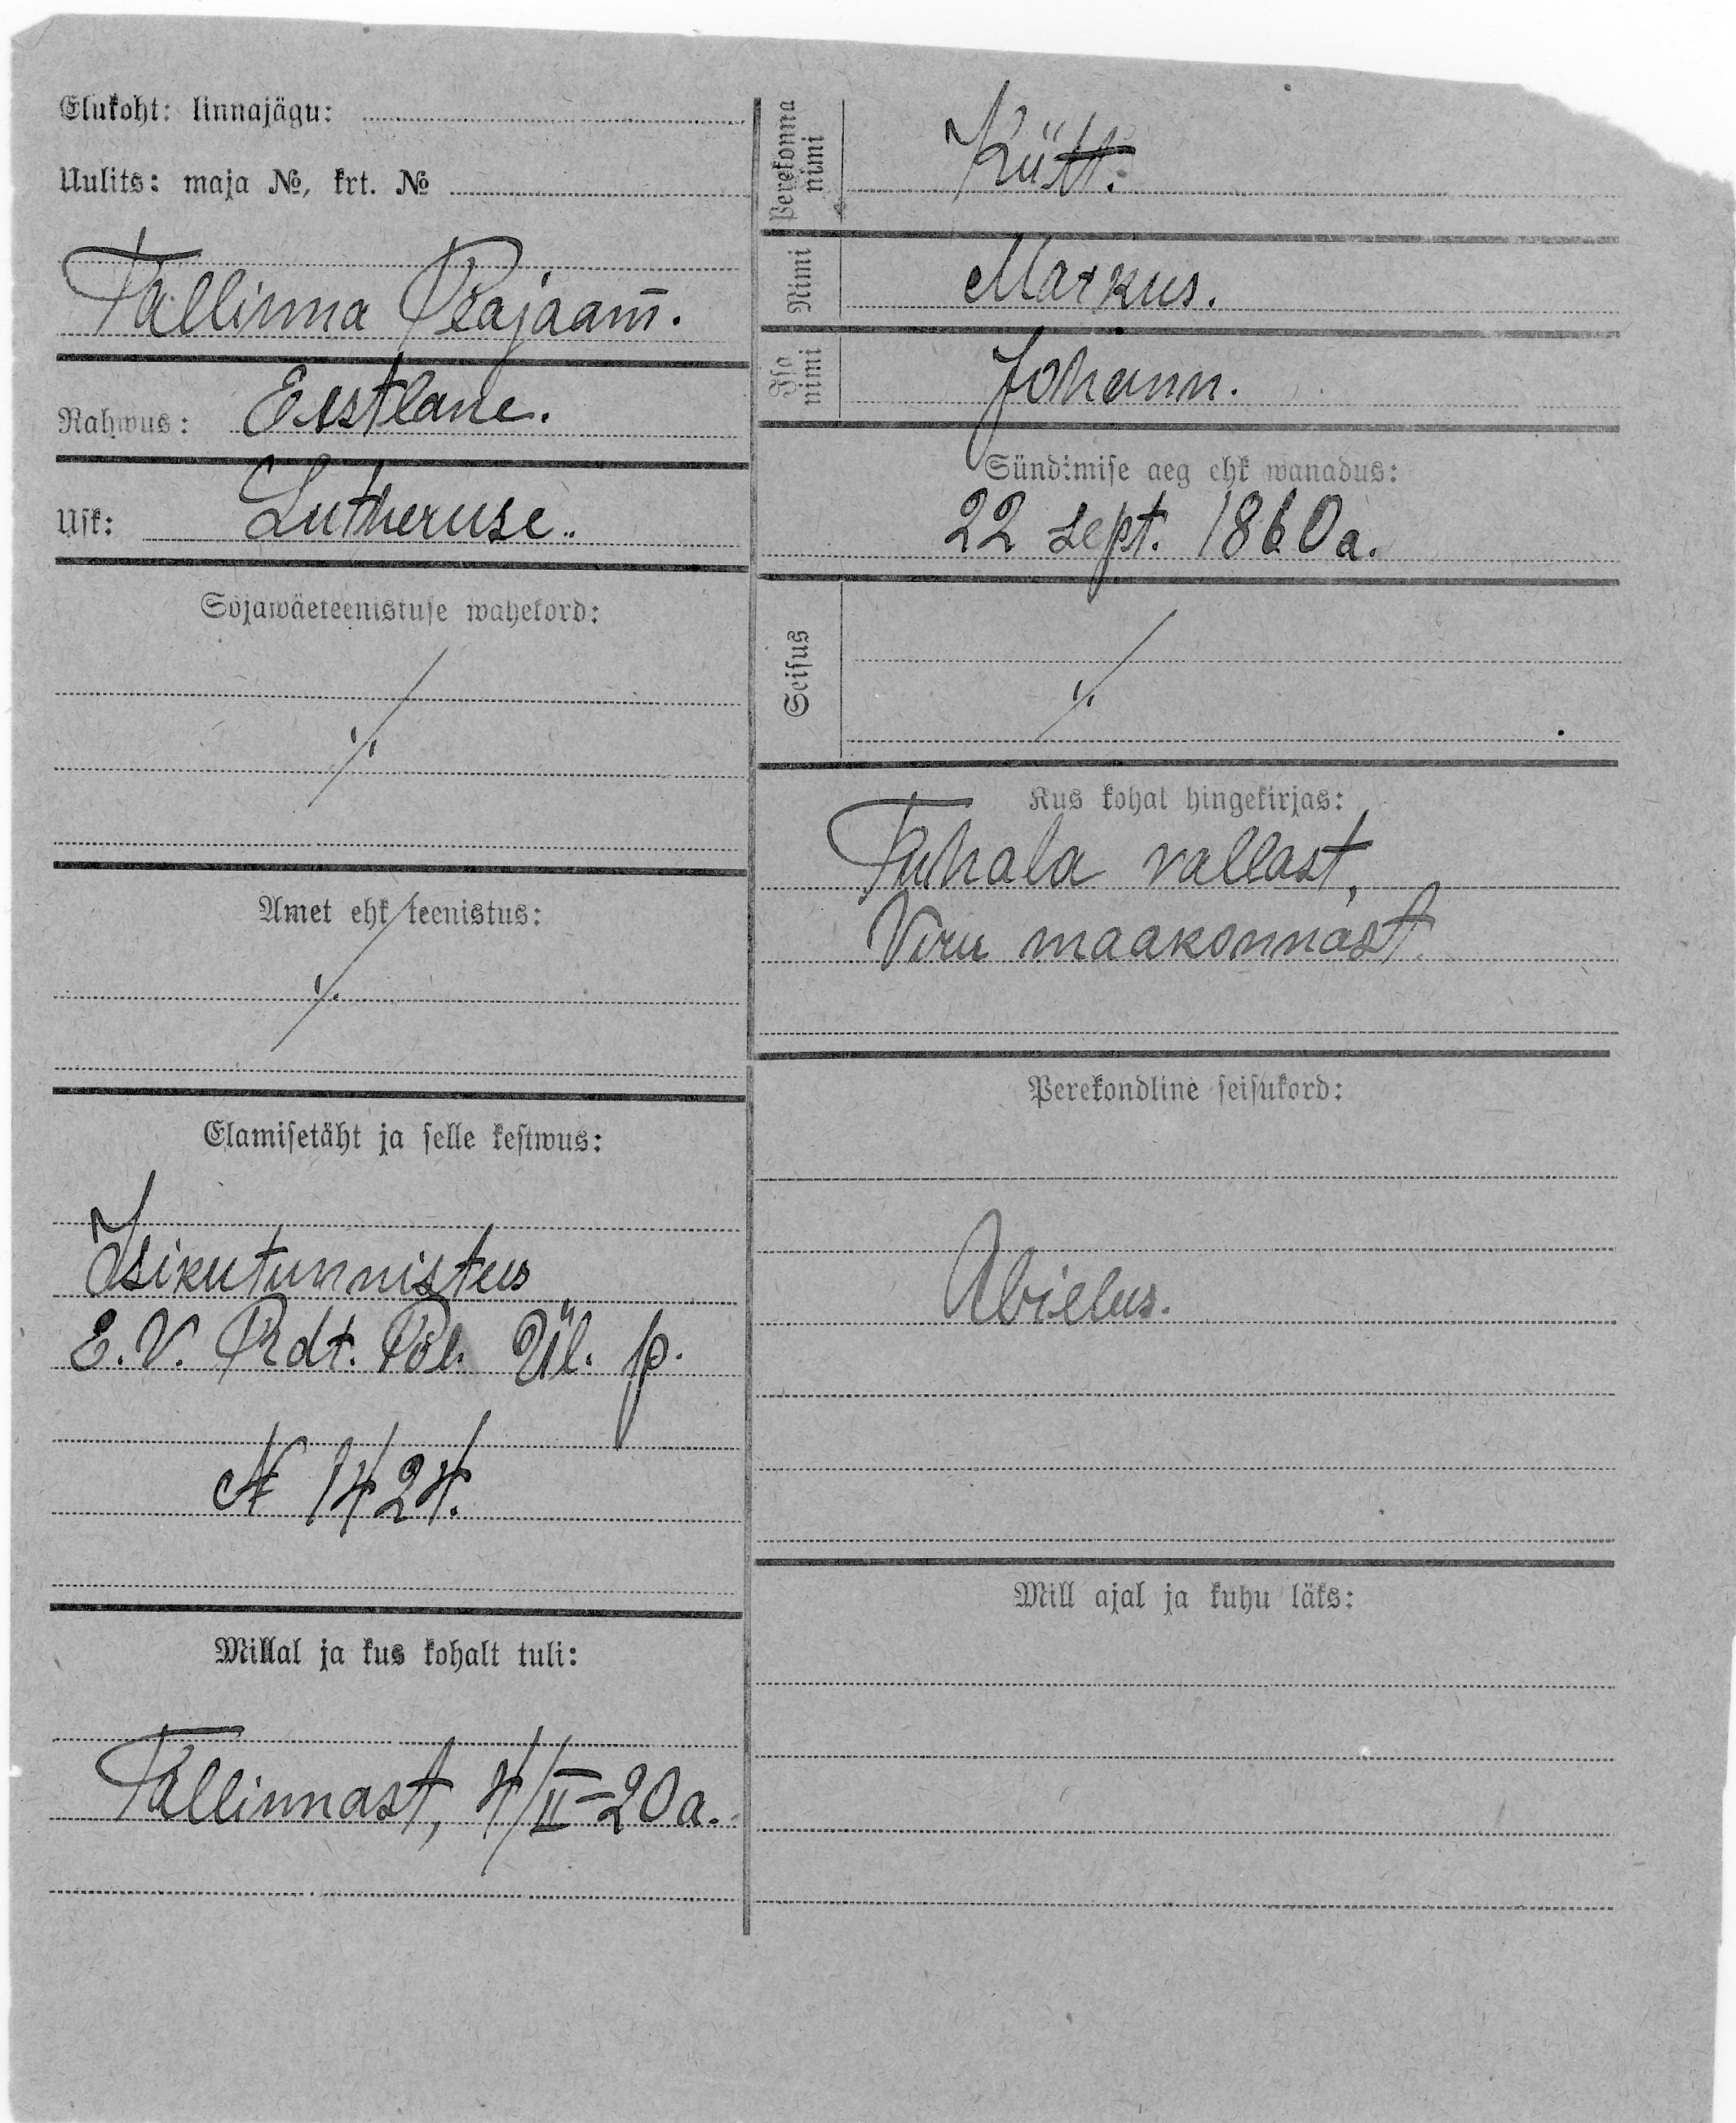 Elukoht: linnajägu:
Uulits: maja №, krt. №
Tallinna Peajaam.
Rahwus: Eestlane.
Usk: Lutheruse.
Sõjawäeteenistuse wahekord:
Amet ehk teenistus:
Elamisetäht ja selle kestwus:
Isikutunnistus
E. V. Rdt. Pol. Ül. p.
№ 1424.
Millal ja kus kohalt tuli:
Tallinnast, 4/II-20a.
Perekonna nimi
Kütt.
Nimi
Markus.
Isa nimi
Johann.
Sündimise aeg ehk wanadus:
22 sept. 1860a.
Seisus
Kus kohal hingekirjas:
Tuhala vallast,
Viru maakonnast
Perekondline seisukord:
Abielus.
Mill ajal ja kuhu läks: